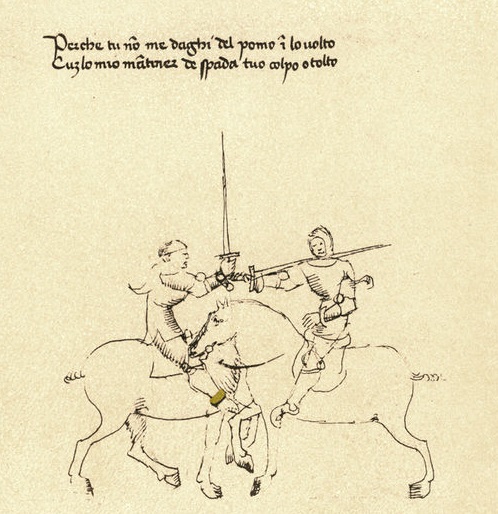 Perche tu nõ me daghi del pomo ĩ lo uolto
Cuz lo mio mãtiner de spada tuo colpo o tolto